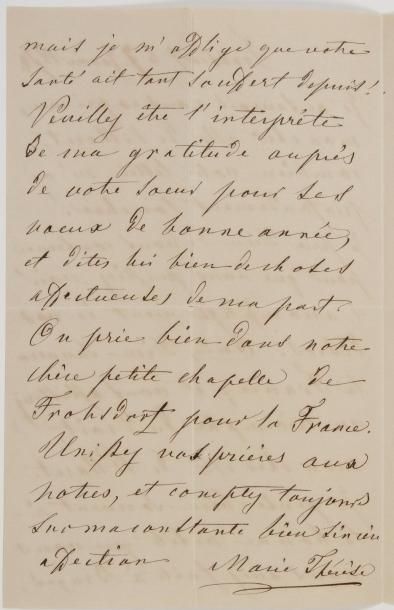 mais je m'afflige que votre
santé ait tant souffert depuis!
Veuillez être l'interprète
de ma gratitude auprès
de votre soeur pour ses
voeux de bonne année,
et dites lui bien de choses
affectueuses de ma part.
On prie bien dans notre
chère petite chapelle de
Frohsdorf pour la France.
Unissez vos prières aux
notres, et comptez toujours
sur ma constante bien sincère
affection Marie Thérèse